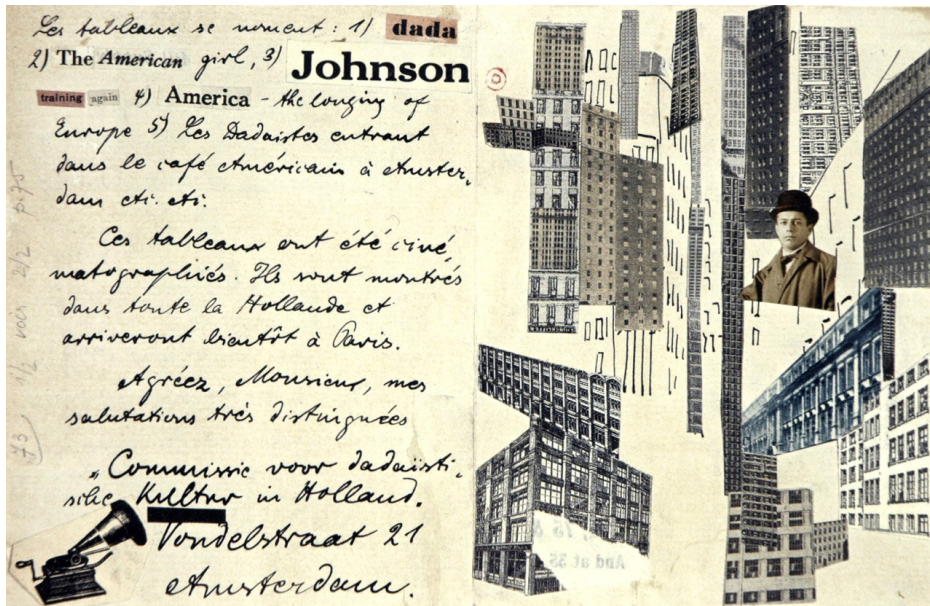 Les tableaux se noment : 1) dada
2) The American girl, 3) Johnson
training again 4) America - the longing of
Europe 5) Les Dadaistes entrant
dans le café Américain à Amster,
dam etc. etc.
Ces tableaux ont été ciné,
matographiés. Ils sont montrés
dans toute la Hollande et
arriveront bientôt à Paris.
Agréez, Monsieur, mes
salutations très distinguées
„Commissie voor dadaïsti,
sche Kultur in Holland.
Vondelstraat 21
Amsterdam.
1/2 voir 2/2 p. 75
75
And at 35